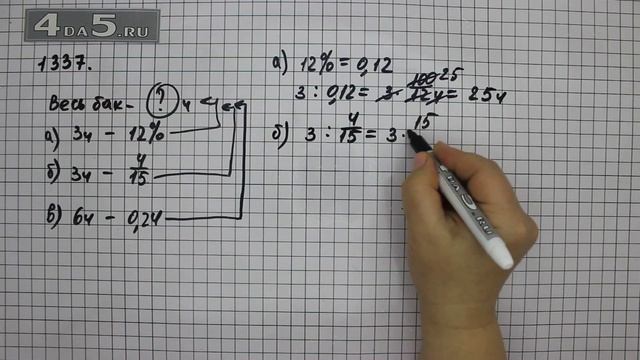 4DA5.RU
1337.
Весь бак - ? ч
а) 3ч - 12%
б) 3ч - 4/15
в) 6ч - 0,24
а) 12% = 0,12
3 : 0,12 = 3 · 100 25 / 12 4 = 25ч
б) 3 : 4/15 = 3 · 15
4DA5.RU